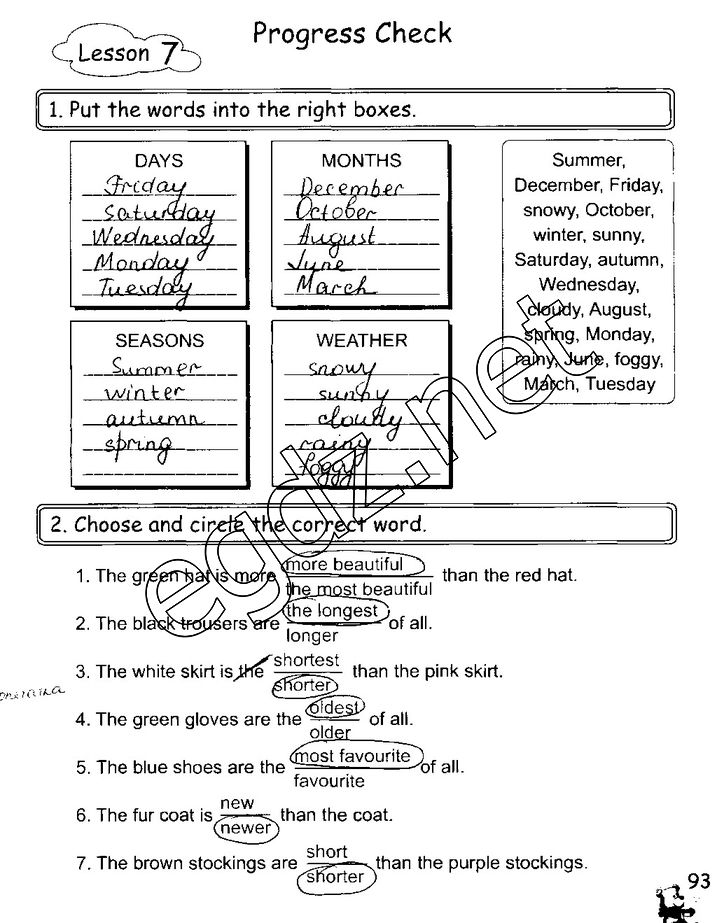 Lesson 7
Progress Check
1. Put the words into the right boxes.
DAYS
Friday
Saturday
Wednesday
Monday
Tuesday
MONTHS
December
October
August
June
March
Summer,
December, Friday,
snowy, October,
winter, sunny,
Saturday, autumn,
Wednesday,
cloudy, August,
spring, Monday,
rainy, June, foggy,
March, Tuesday
SEASONS
Summer
winter
autumn
spring
WEATHER
snowy
sunny
cloudy
rainy
foggy
egdz.net
2. Choose and circle the correct word.
1. The green hat is more more beautiful than the red hat.
the most beautiful
2. The black trousers are the longest of all.
longer
3. The white skirt is the shortest than the pink skirt.
shorter
4. The green gloves are the oldest of all.
older
5. The blue shoes are the most favourite of all.
favourite
6. The fur coat is new than the coat.
newer
7. The brown stockings are short than the purple stockings.
shorter
93